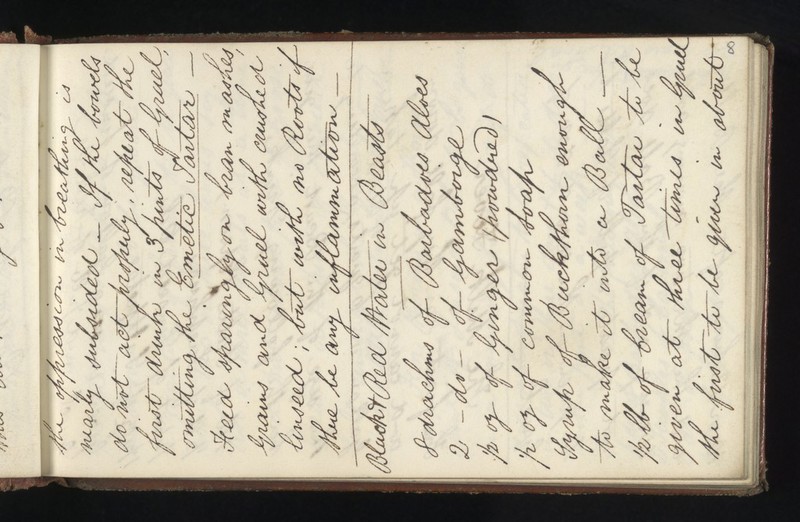 8
the oppression in breathing is
nearly subsided – If the bowels
do not act properly, repeat the
first drink in 3 pints of Gruel,
omitting the Emetic Tartar –
Feed sparingly on bran mashes,
Grains and Gruel with crushed
linseed, but with no Roots if
there be any inflammation –
Black & Red Water in Beasts
8 drachms of Barbadoes Aloes
2 – do – of Gamboige
½ oz of Ginger (powdred)
½ oz of common soap
Syrup of Buckthorn enough
to make it into a Ball –
½ lb of Cream of Tartar to be
given at three times in Gruel
the first to be given in about